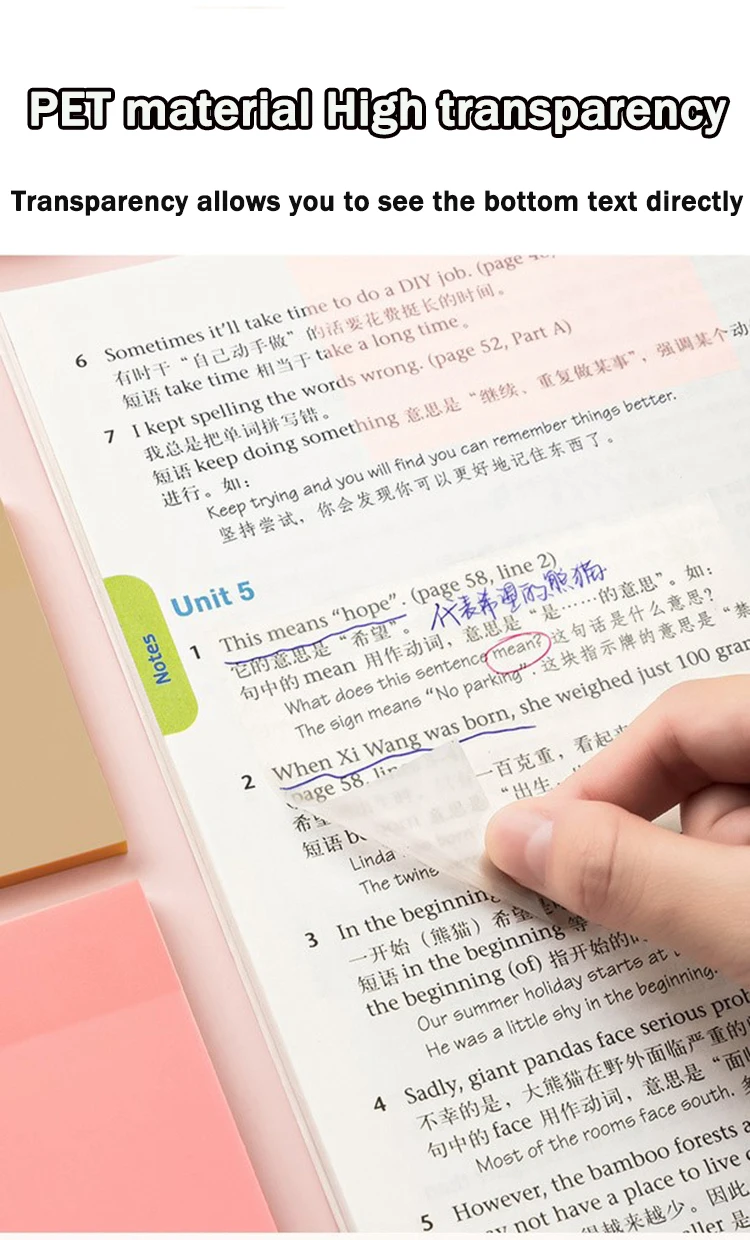 PET material High transparency
Transparency allows you to see the bottom text directly
6 Sometimes it'll take time to do a DIY job. (page
有时干“自己动手做”的活要花费挺长的时间。
短语 take time 相当于 take a long time。
7 I kept spelling the words wrong. (page 52, Part A)
我总是把单词拼写错。
短语 keep doing something 意思是“继续、重复做某事”，强调某个动
进行。如：
Keep trying and you will find you can remember things better.
坚持尝试，你会发现你可以更好地记住东西了。
Notes
Unit 5
1 This means “hope”. (page 58, line 2)
代表希望的熊猫
它的意思是“希望”。
句中的 mean 用作动词，意思是“是……的意思”。如：
What does this sentence mean? 这句话是什么意思？
The sign means “No parking”. 这块指示牌的意思是“禁
2 When Xi Wang was born, she weighed just 100 gran
page 58, lin
一百克重，看起
希望
“出生
短语 b
Linda
The twins
3 In the beginning
一开始（熊猫）希望
短语 in the beginning 等
the beginning (of) 指开始的
Our summer holiday starts at t
He was a little shy in the beginning.
4 Sadly, giant pandas face serious prob
不幸的是，大熊猫在野外面临严重的
句中的 face 用作动词，意思是“面
Most of the rooms face south.
5 However, the bamboo forests a
y not have a place to live
得越来越少。因此
ller 是